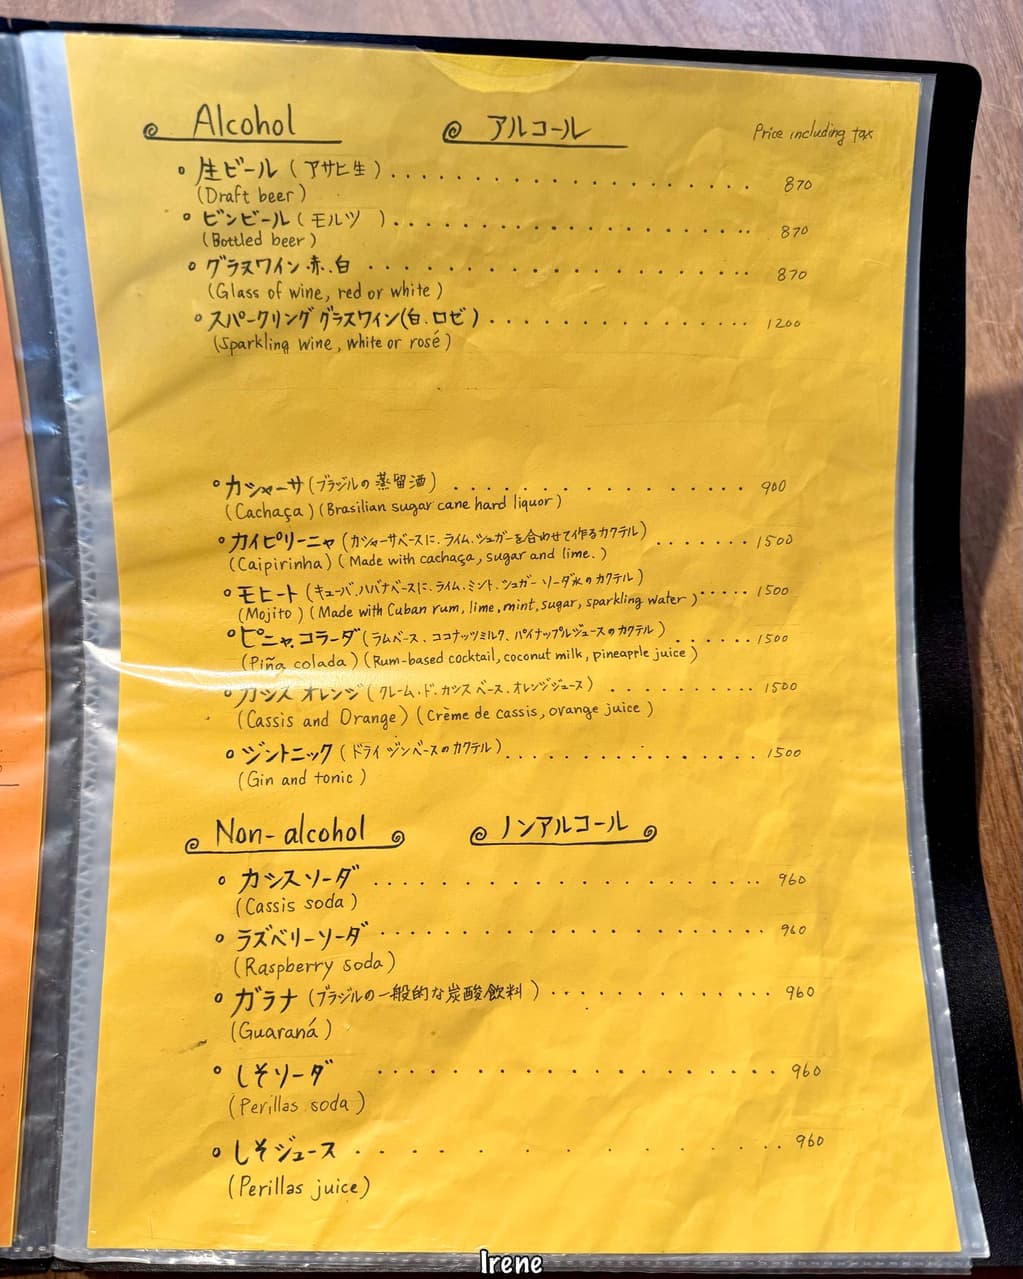 Alcohol アルコール Price including tax
生ビール (アサヒ生) 870
(Draft beer)
ビンビール (モルツ) 870
(Bottled beer)
グラスワイン 赤、白 870
(Glass of wine, red or white)
スパークリング グラスワイン (白、ロゼ) 1200
(Sparkling wine, white or rosé)
カシャーサ (ブラジルの蒸留酒) 900
(Cachaça) (Brasilian sugar cane hard liquor)
カイピリーニャ (カシャーサベースに、ライム、シュガーを合わせて作るカクテル) 1500
(Caipirinha) (Made with cachaça, sugar and lime.)
モヒート (キューバ、ハバナベースに、ライム、ミント、シュガー ソーダ水のカクテル) 1500
(Mojito) (Made with Cuban rum, lime, mint, sugar, sparkling water)
ピニャ、コラーダ (ラムベース、ココナッツミルク、パイナップルジュースのカクテル) 1500
(Piña colada) (Rum-based cocktail, coconut milk, pineapple juice)
カシス オレンジ (クレーム・ド・カシス ベース、オレンジジュース) 1500
(Cassis and Orange) (Crème de cassis, orange juice)
ジントニック (ドライ ジンベースのカクテル) 1500
(Gin and tonic)
Non-alcohol ノンアルコール
カシスソーダ 960
(Cassis soda)
ラズベリーソーダ 960
(Raspberry soda)
ガラナ (ブラジルの一般的な炭酸飲料) 960
(Guaraná)
しそソーダ 960
(Perillas soda)
しそジュース 960
(Perillas juice)
Irene